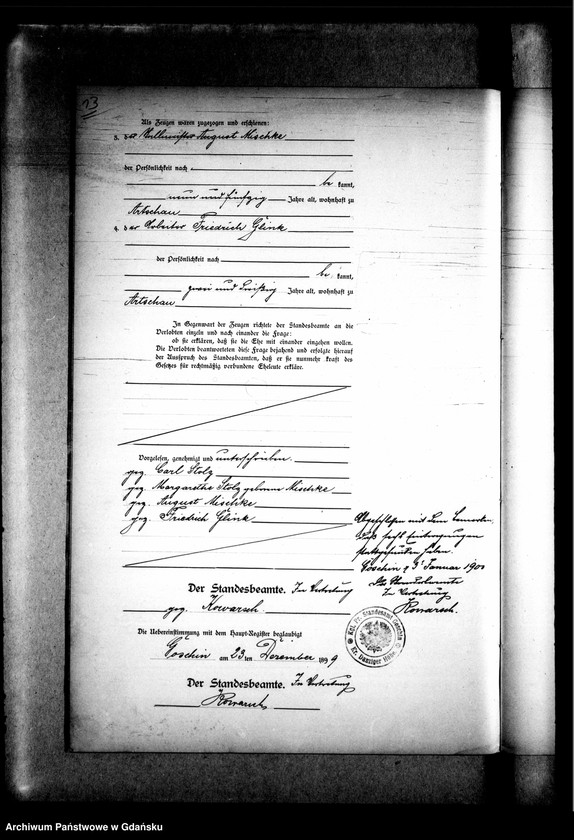 13
Als Zeugen waren zugezogen und erschienen:
3. der August Mischke
der Persönlichkeit nach
be kannt,
neun und fünfzig Jahre alt, wohnhaft zu
Artschau
4. der Arbeiter Friedrich Glink
der Persönlichkeit nach
be kannt,
zwei und dreißig Jahre alt, wohnhaft zu
Artschau
In Gegenwart der Zeugen richtete der Standesbeamte an die
Verlobten einzeln und nach einander die Frage:
ob sie erklären, daß sie die Ehe mit einander eingehen wollen.
Die Verlobten beantworteten diese Frage bejahend und erfolgte hierauf
der Ausspruch des Standesbeamten, daß er sie nunmehr kraft des
Gesetzes für rechtmäßig verbundene Eheleute erkläre.
Vorgelesen, genehmigt und unterschrieben.
gez. Carl Stolz
gez. Margarethe Stolz geborene Mischke
gez. August Mischke
gez. Friedrich Glink
Abgeschlossen mit dem Bemerken,
daß Eintragungen
stattgefunden haben.
Goschin d. 3t Januar 1900
Der Standesbeamte
In Vertretung
Kowarsch.
Der Standesbeamte. In Vertretung
gez. Kowarsch.
Kgl. Pr. Standesamt Goschin
Kr. Danziger Höhe
Die Uebereinstimmung mit dem Haupt-Register beglaubigt
Goschin am 23ten Dezember 1899
Der Standesbeamte. In Vertretung
Kowarsch
Archiwum Państwowe w Gdańsku